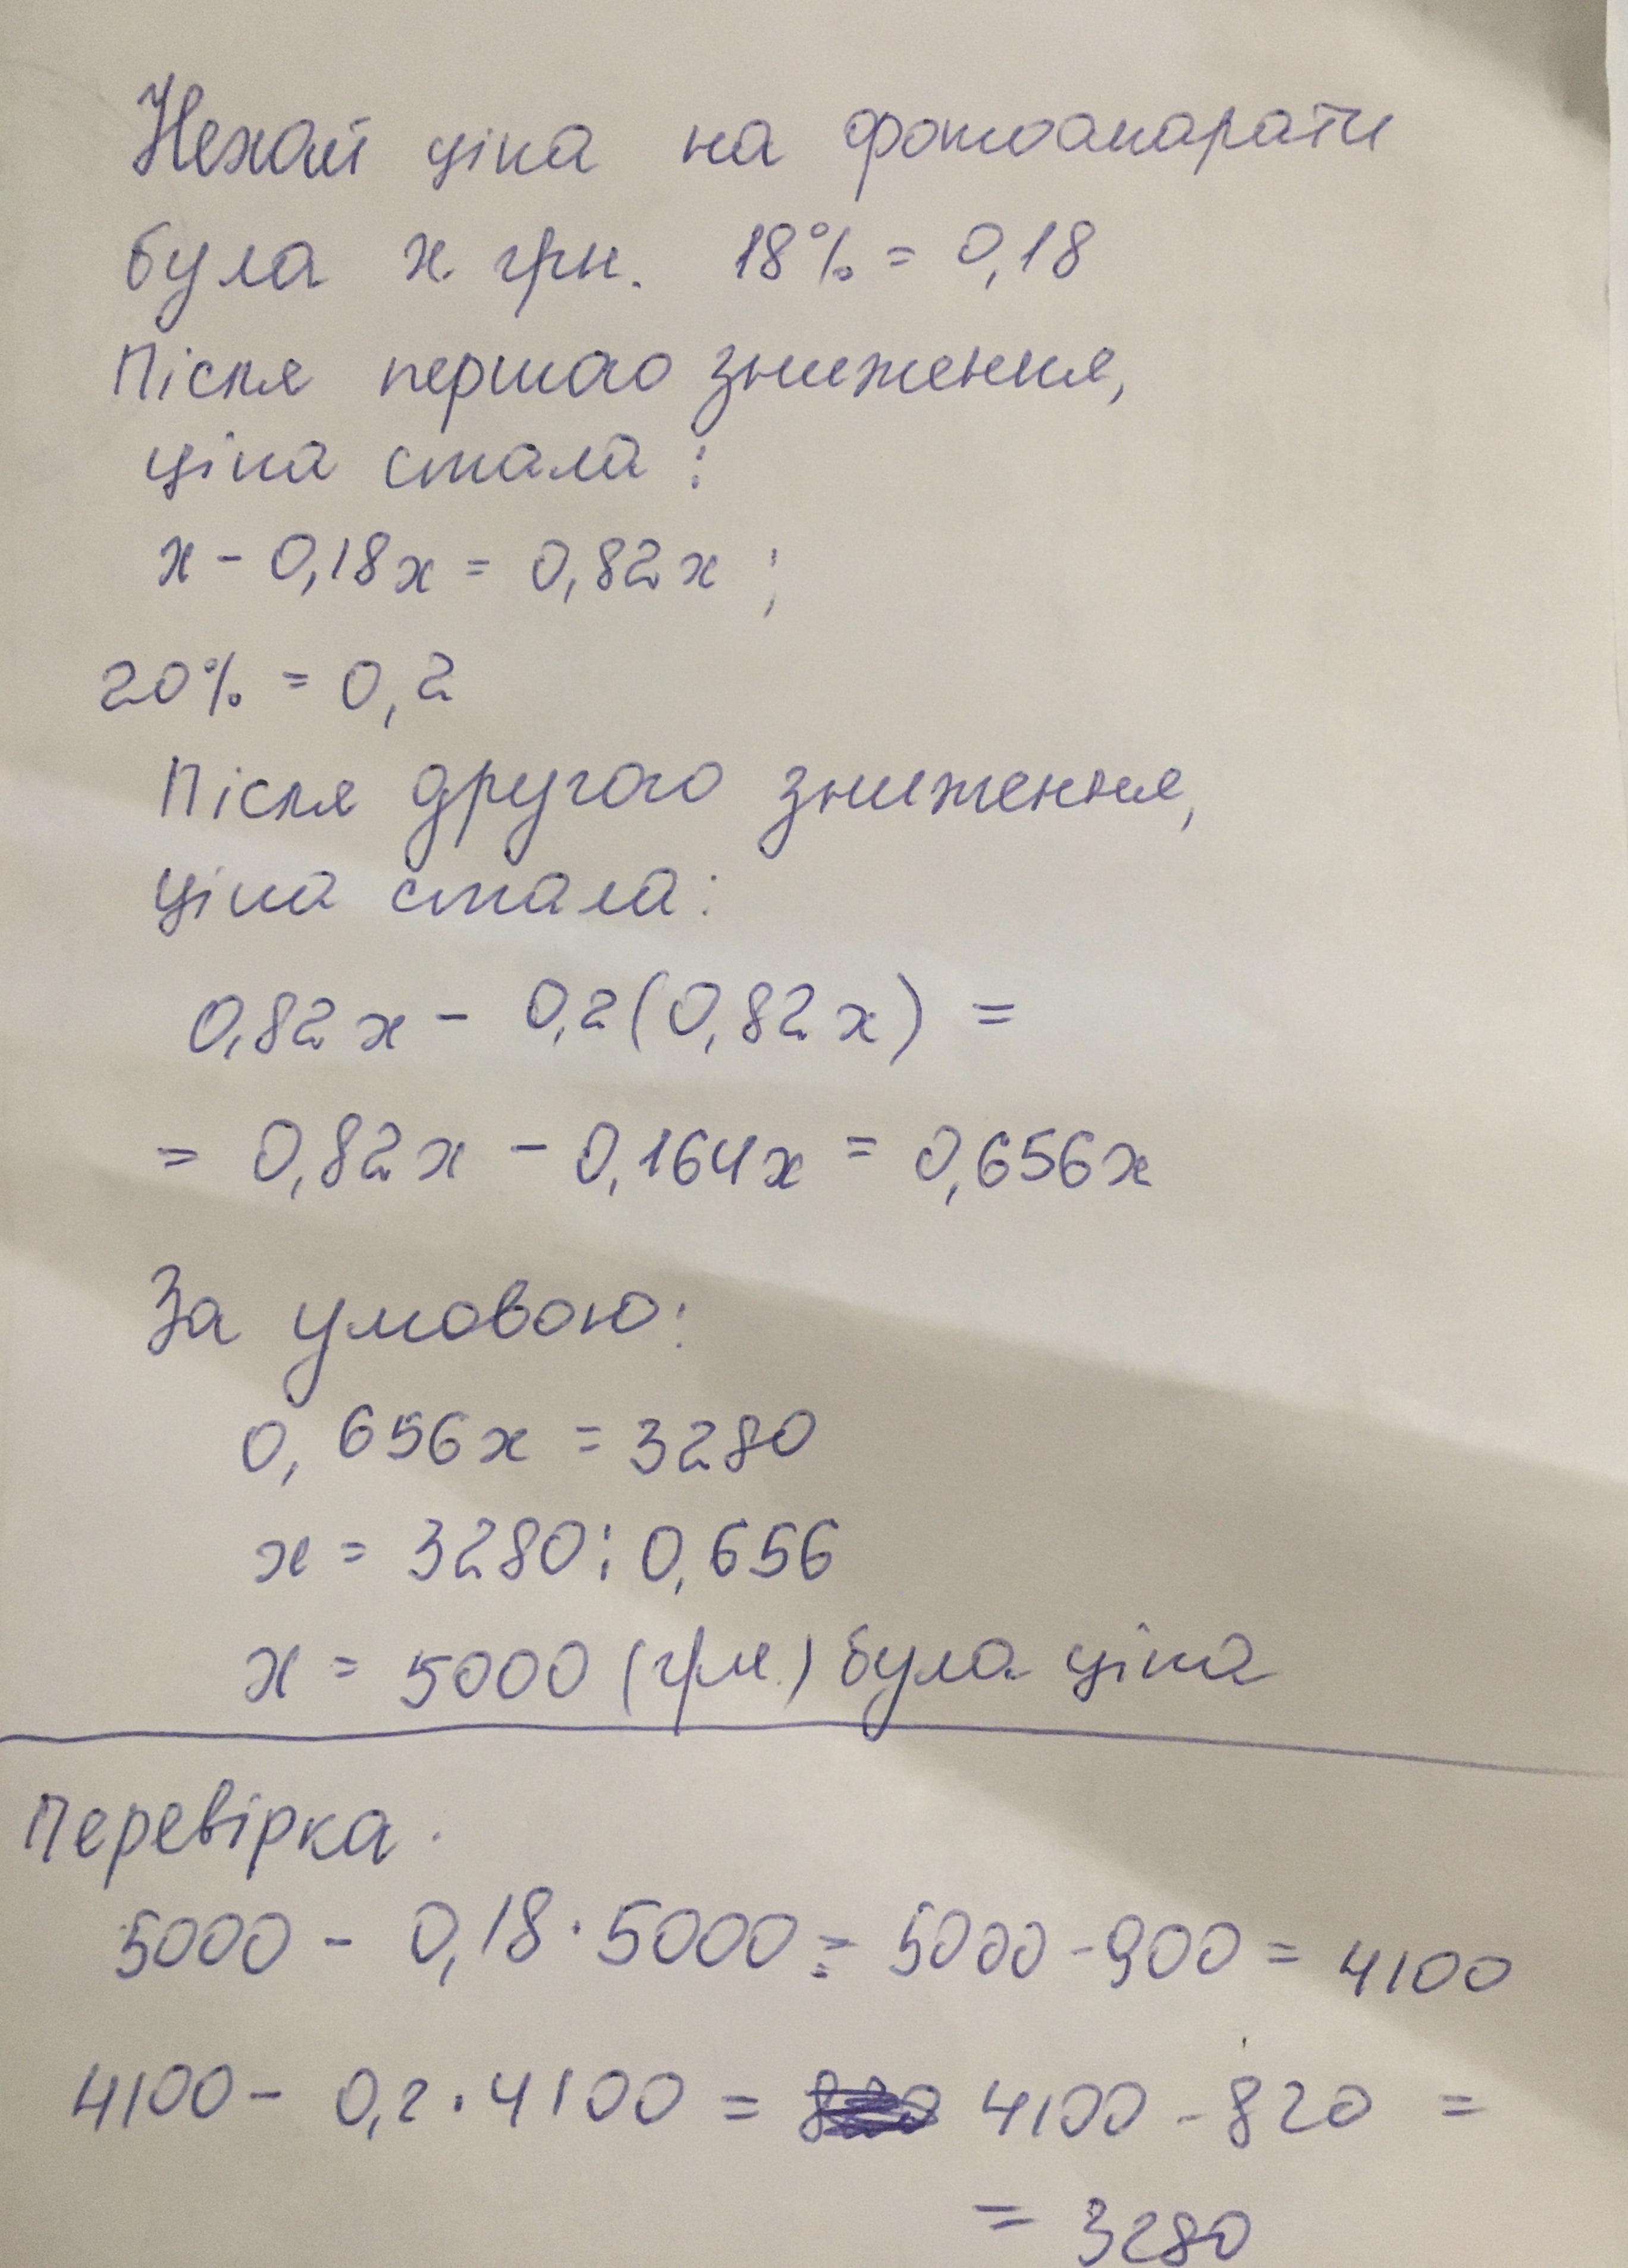 Нехай ціна на фотоапарати
була х грн. 18% = 0,18
Після першого зниження,
ціна стала:
х - 0,18х = 0,82х ;
20% = 0,2
Після другого зниження,
ціна стала:
0,82х - 0,2(0,82х) =
= 0,82х - 0,164х = 0,656х
За умовою:
0,656х = 3280
х = 3280:0,656
х = 5000 (грн.) була ціна
Перевірка.
5000 - 0,18·5000 = 5000-900 = 4100
4100 - 0,2·4100 = 4100 - 820 =
= 3280